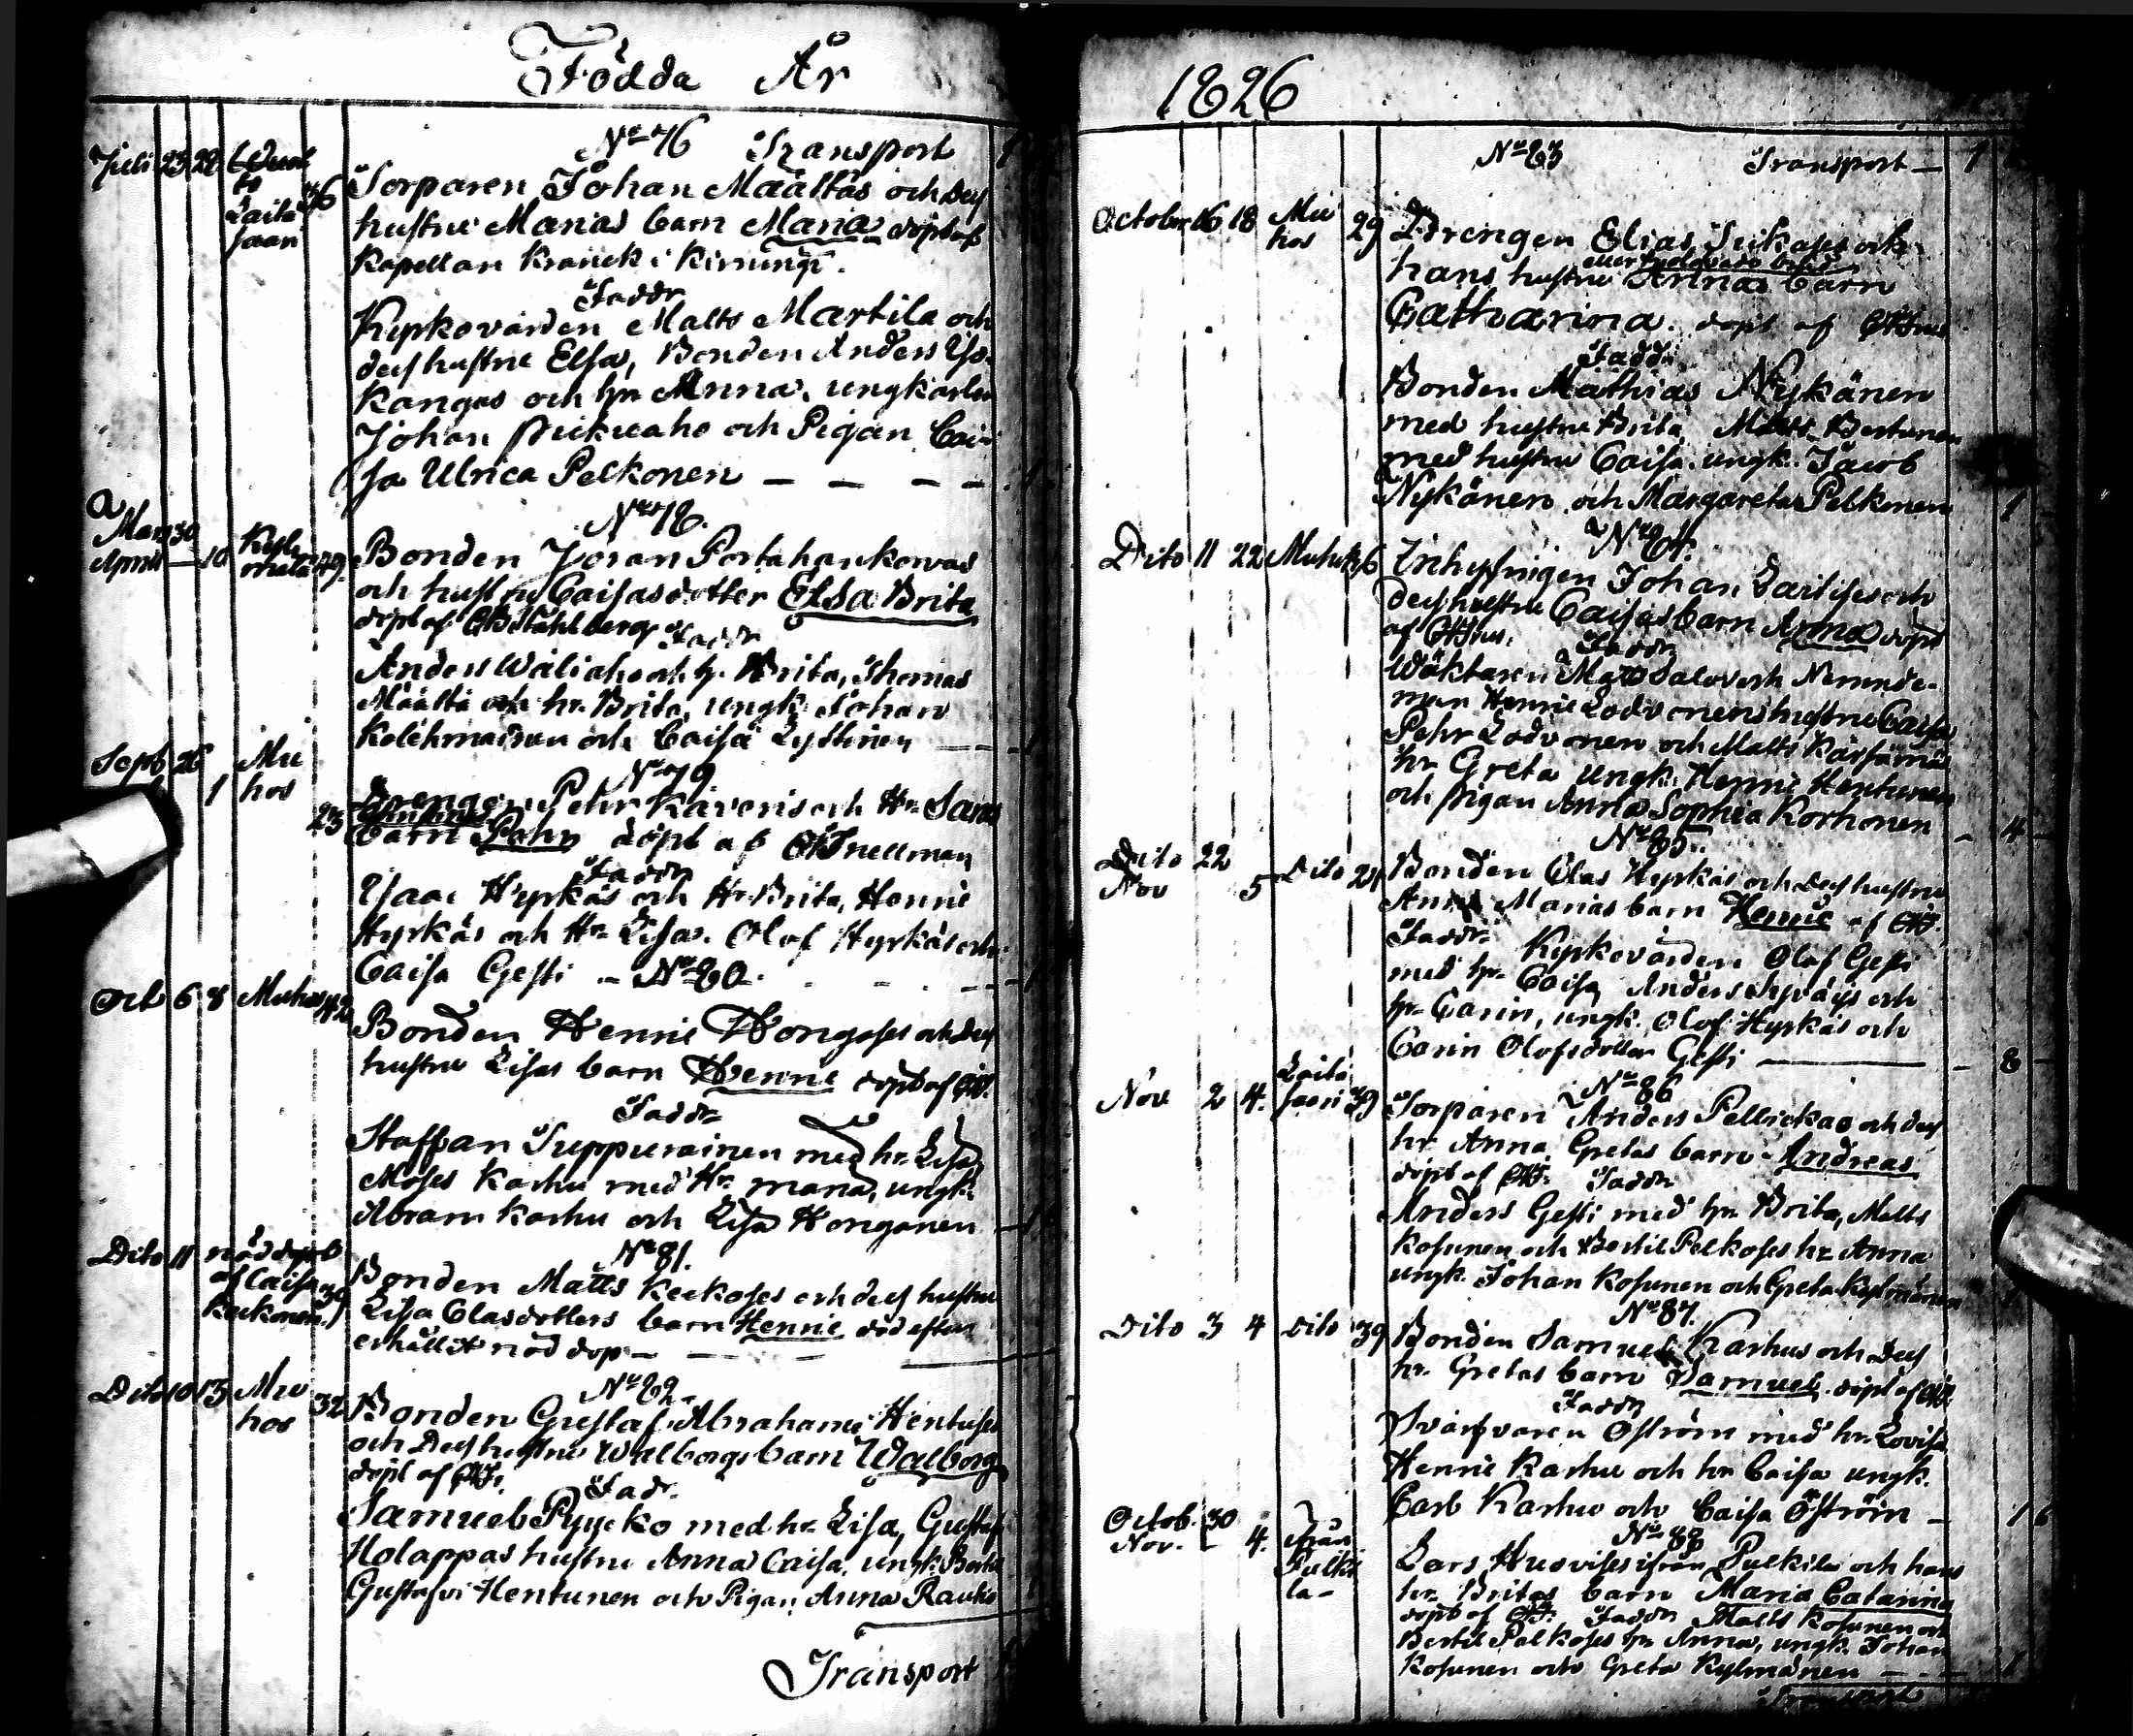 Födda År
No 76 Transport
Juli 23 28
Laita
saari
Torparen Johan Määttäs och Dess
hustru Marias barn Maria döpt af
Kapellan Kranck i Kirmingi.
Faddr
Kyrkovärden Matts Martila och
dess hustru Elsa, Bonden Anders Ys-
kangas och hr Anna, ungkarlen
Johan och Pigan Cai-
sa Ulrica Pelkonen
No 78.
Mars 30
April 10
Bonden Joran
och hustru Caisas dotter Elsa Brita
döpt af Ståhlberg Faddr
Anders Waliaho och h. Brita, Thomas
Määttä och hr Brita, ungk. Johan
Kolehmainen och Caisa Lyttinen
No 79
Sept 26
1 Mu
hos
23
Drengen Pehr Käveris och Hr Saras
barn Pehr döpt af Snellman
Faddr
Isaac Hyrkäs och Hr Brita, Henric
Hyrkäs och Hr Lisa. Olof Hyrkäs och
Caisa Gesti - No 80.
Oct 6 8 Muhos 42
Bonden Henric Hongoses och Dess
hustru Lisas barn Henric döpt af
Faddr
Staffan Suppurainen med hr Lisa
Moses Karhu med Hr Maria, ungk.
Abram Karhu och Lisa Honganen
No 81.
Dito 11 nöddöpt
af Caisa
Keckonen
Bonden Matts Keckoses och dess hustru
Lisa Clasdotters barn Henric död efter
erhållit nöddop
No 82
Dito 10 13 Mu
hos
32
Bonden Gustaf Abrahams Hentuses
och Dess hustru Walborgs barn Walborg
döpt af
Fadr.
Samuel Pyycko med hr Lisa, Gustaf
Holappas hustru Anna Caisa, ungk. Bertil
Gustafsi Hentunen och Pigan Anna Rautio
Transport
1826
No 83 Transport
October 16 18 Mu
hos
29
Drengen Elias Tickases och
hans hustru Annas barn
Catharina. döpt af
Faddr
Bonden Mathias Nykänen
med hustru Brita, Matts
med hustru Caisa. ungk. Jacob
Nykänen och Margareta Pelkonen
No 84.
Dito 11 22 Muhos 36
Inhysingen Johan och
dess hustru Caisas barn Anna döpt
af Faddr
Wäktaren Matts och Nemnde-
man Henric hustru Caisa
Pehr och Matts
hr Greta ungk. Henric Hentunen
och pigan Anna Sophia Korhonen
4
No 85.
Dito 22
Nov 5 Dito
Bonden Clas Hyrkäs och dess hustru
Anna Marias barn Henric af
Faddr Kyrkovärden Olof Gesti
med hr Caisa, Anders och
hr Carin, ungk. Olof Hyrkäs och
Carin Olofsdotter Gesti
8
No 86
Nov 2 4. Laita
saari 39
Torparen Anders Pellickas och dess
hr Anna Gretas barn Andreas
döpt af Faddr
Anders Gesti med hr Brita, Matts
Kosunen och Bertil Pelkoses hr Anna
ungk. Johan Kosunen och Greta Kylmänen
No 87.
Dito 3 4 Dito 39
Bonden Samuel Karhus och dess
hr Gretas barn Samuel döpt af
Faddr
Svarfvaren Öström med hr Lovisa
Henric Karhu och hr Caisa ungk.
Carl Karhu och Caisa Öström
No 88
Octob. 30
Nov. 4. ifrån
Pulki
la
Lars Husvises ifrån Pulkila och hans
hr Britas barn Maria Catarina
döpt af Faddr Matts Kosunen och
Bertil Pelkoses hr Anna, ungk. Johan
Kosunen och Greta Kylmänen
Transport